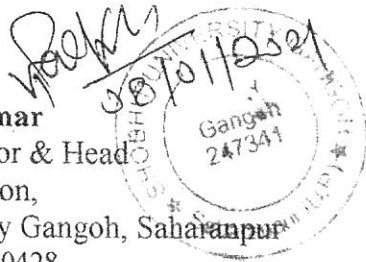 08/01/2021
mar
or & Head
on,
y Gangoh, Saharanpur
0428
SHOBHIT UNIVERSITY
Gangoh
247341
(U.P.)